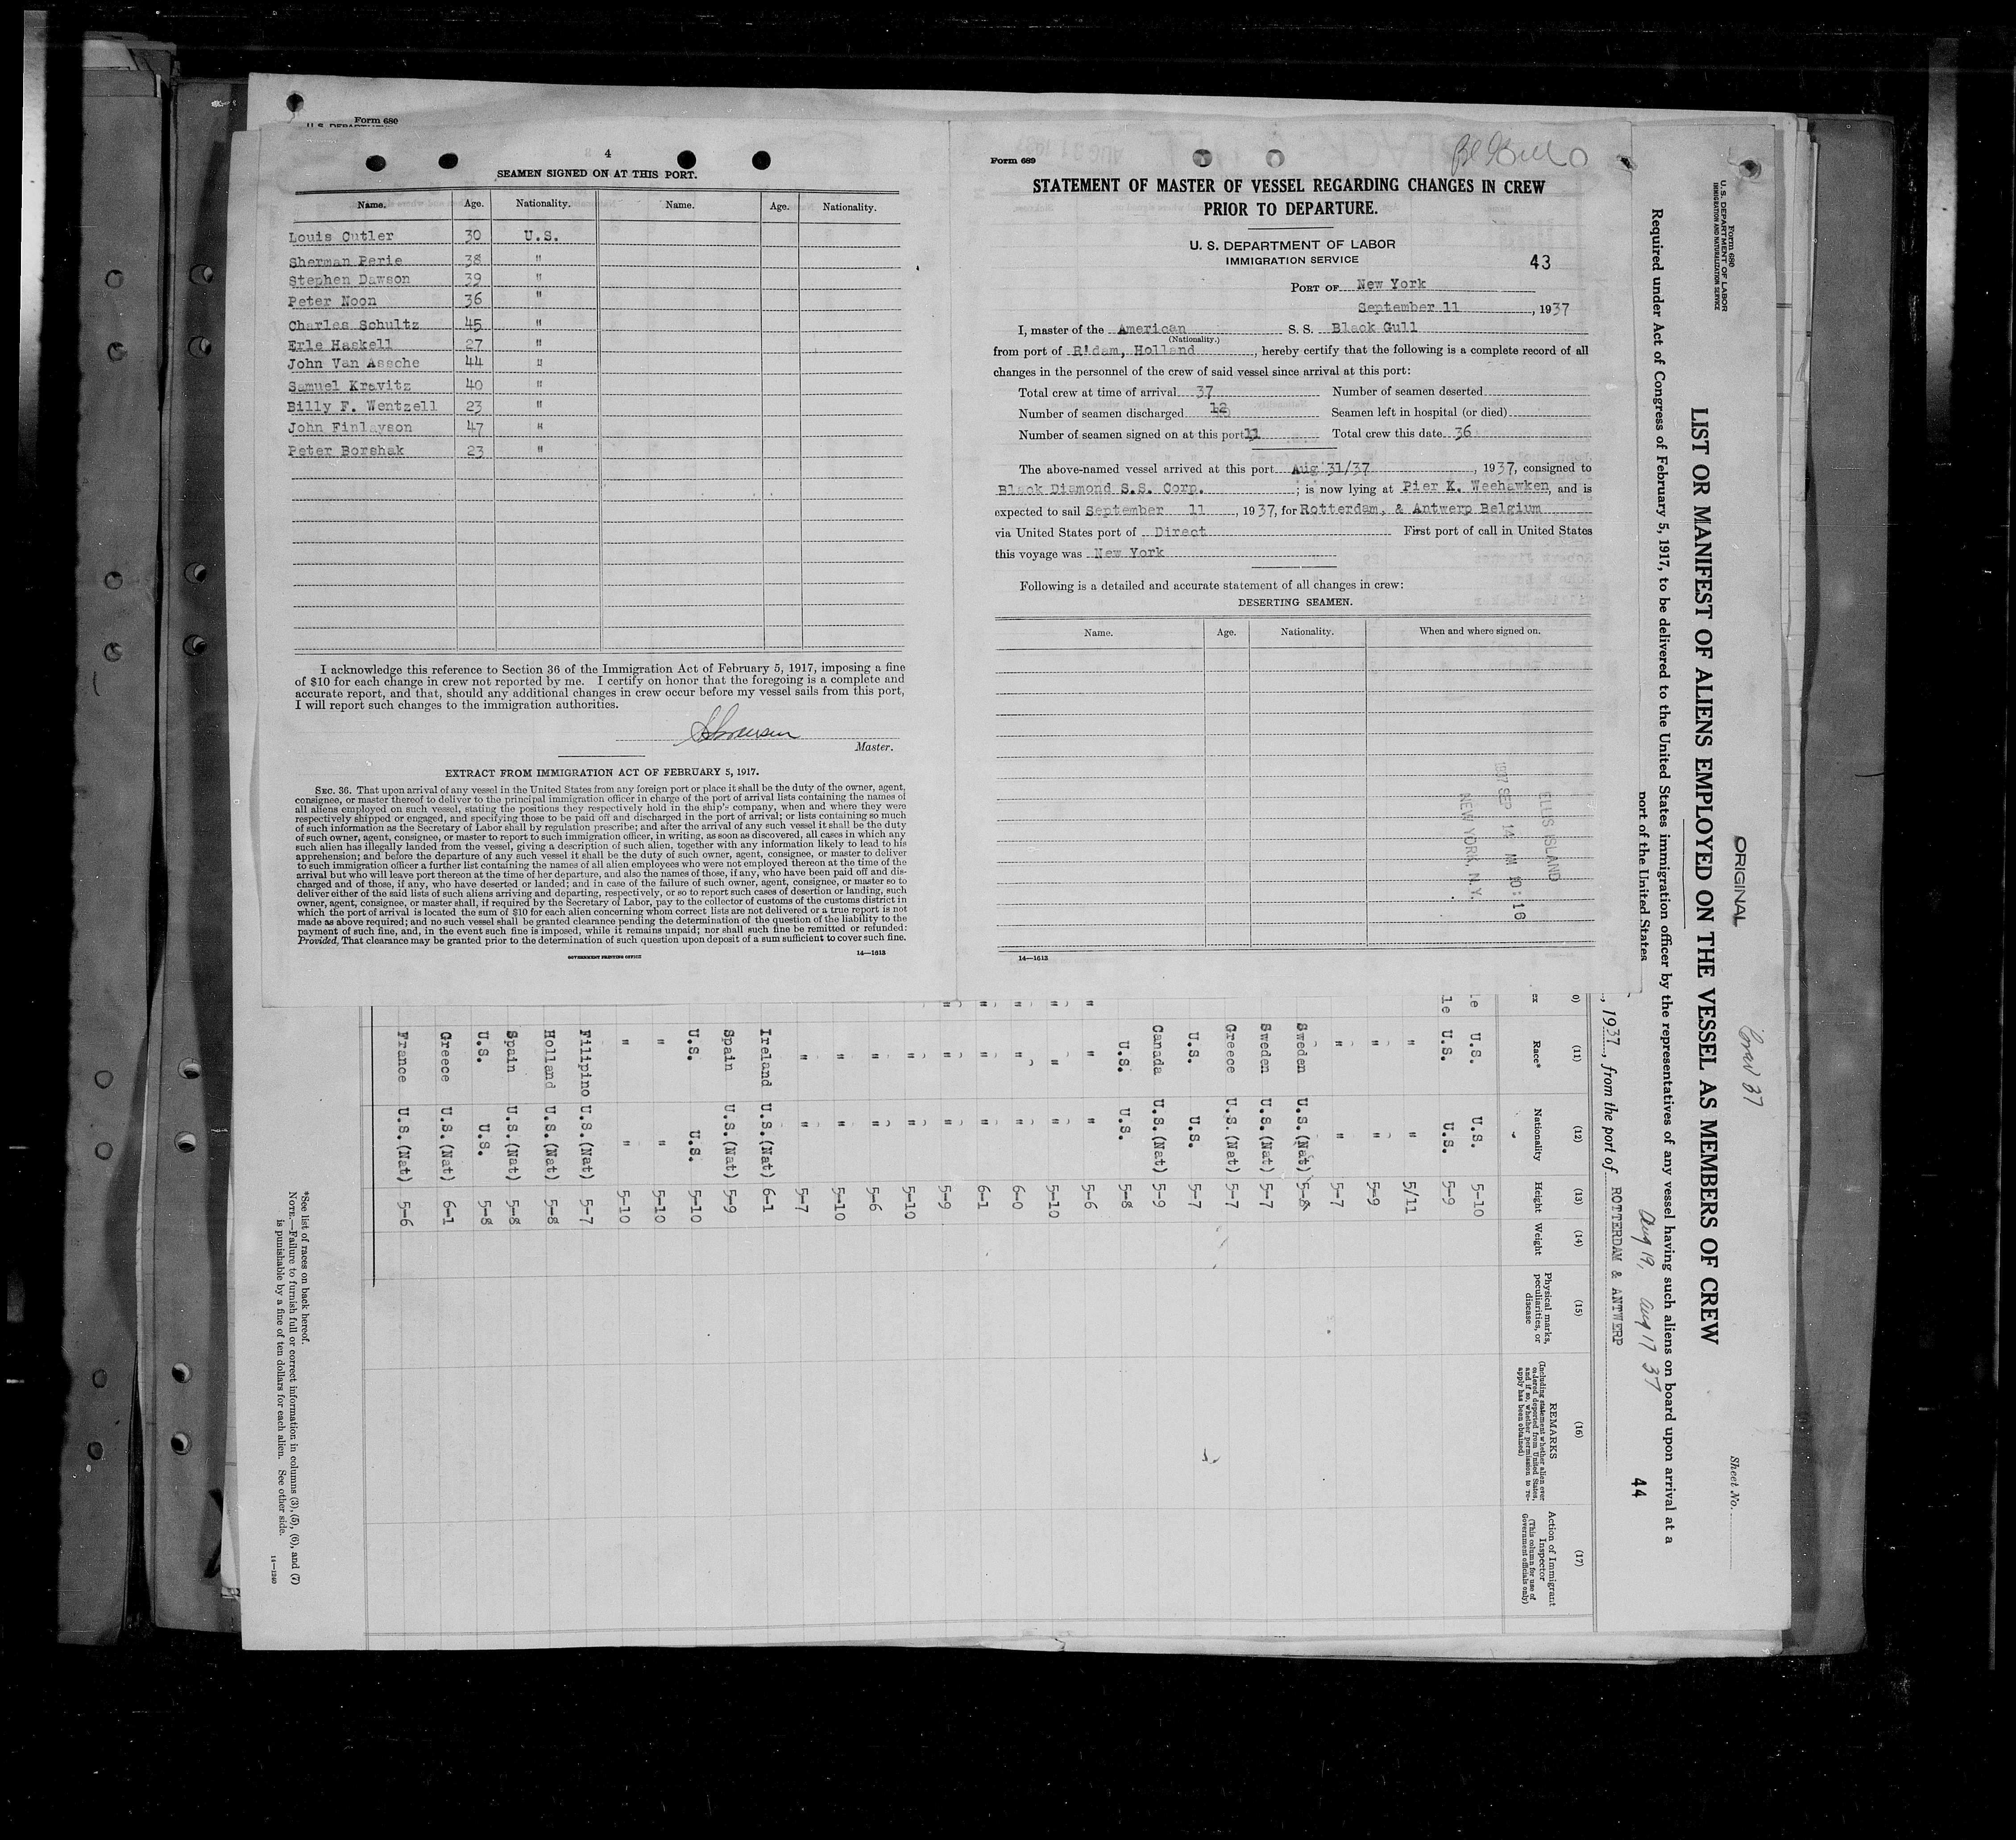 Form 680
4
SEAMEN SIGNED ON AT THIS PORT.
Name. Age. Nationality. Name. Age. Nationality.
Louis Cutler 30 U.S.
Sherman Perie 38 "
Stephen Dawson 39 "
Peter Noon 36 "
Charles Schultz 45 "
Erle Haskell 27 "
John Van Assche 44 "
Samuel Kravitz 40 "
Billy F. Wentzell 23 "
John Finlayson 47 "
Peter Borshak 23 "
I acknowledge this reference to Section 36 of the Immigration Act of February 5, 1917, imposing a fine
of $10 for each change in crew not reported by me. I certify on honor that the foregoing is a complete and
accurate report, and that, should any additional changes in crew occur before my vessel sails from this port,
I will report such changes to the immigration authorities.
Master.
EXTRACT FROM IMMIGRATION ACT OF FEBRUARY 5, 1917.
SEC. 36. That upon arrival of any vessel in the United States from any foreign port or place it shall be the duty of the owner, agent,
consignee, or master thereof to deliver to the principal immigration officer in charge of the port of arrival lists containing the names of
all aliens employed on such vessel, stating the positions they respectively hold in the ship's company, when and where they were
respectively shipped or engaged, and specifying those to be paid off and discharged in the port of arrival; or lists containing so much
of such information as the Secretary of Labor shall by regulation prescribe; and after the arrival of any such vessel it shall be the duty
of such owner, agent, consignee, or master to report to such immigration officer, in writing, as soon as discovered, all cases in which any
such alien has illegally landed from the vessel, giving a description of such alien, together with any information likely to lead to his
apprehension; and before the departure of any such vessel it shall be the duty of such owner, agent, consignee, or master to deliver
to such immigration officer a further list containing the names of all alien employees who were not employed thereon at the time of the
arrival but who will leave port thereon at the time of her departure, and also the names of those, if any, who have been paid off and dis-
charged and of those, if any, who have deserted or landed; and in case of the failure of such owner, agent, consignee, or master so to
deliver either of the said lists of such aliens arriving and departing, respectively, or so to report such cases of desertion or landing, such
owner, agent, consignee, or master shall, if required by the Secretary of Labor, pay to the collector of customs of the customs district in
which the port of arrival is located the sum of $10 for each alien concerning whom correct lists are not delivered or a true report is not
made as above required; and no such vessel shall be granted clearance pending the determination of the question of the liability to the
payment of such fine, and, in the event such fine is imposed, while it remains unpaid; nor shall such fine be remitted or refunded:
Provided, That clearance may be granted prior to the determination of such question upon deposit of a sum sufficient to cover such fine.
GOVERNMENT PRINTING OFFICE 14—1613
Form 689
STATEMENT OF MASTER OF VESSEL REGARDING CHANGES IN CREW
PRIOR TO DEPARTURE.
U. S. DEPARTMENT OF LABOR
IMMIGRATION SERVICE
43
PORT OF New York
September 11, 1937
I, master of the American S. S. Black Gull
(Nationality.)
from port of R'dam, Holland, hereby certify that the following is a complete record of all
changes in the personnel of the crew of said vessel since arrival at this port:
Total crew at time of arrival 37 Number of seamen deserted
Number of seamen discharged 12 Seamen left in hospital (or died)
Number of seamen signed on at this port 11 Total crew this date 36
The above-named vessel arrived at this port Aug 31/37, 1937, consigned to
Black Diamond S.S. Corp.; is now lying at Pier K. Weehawken, and is
expected to sail September 11, 1937, for Rotterdam, & Antwerp Belgium
via United States port of Direct First port of call in United States
this voyage was New York
Following is a detailed and accurate statement of all changes in crew:
DESERTING SEAMEN.
Name. Age. Nationality. When and where signed on.
ELLIS ISLAND
1937 SEP 14 AM 10:16
NEW YORK, N.Y.
14—1613
ORIGINAL
Sheet No.
Form 680
U. S. DEPARTMENT OF LABOR
IMMIGRATION AND NATURALIZATION SERVICE
LIST OR MANIFEST OF ALIENS EMPLOYED ON THE VESSEL AS MEMBERS OF CREW
Required under Act of Congress of February 5, 1917, to be delivered to the United States immigration officer by the representatives of any vessel having such aliens on board upon arrival at a
port of the United States
Aug 19, Aug 17 37
44
, 1937, from the port of ROTTERDAM & ANTWERP
(11) (12) (13) (14) (15) (16) (17)
Race* Nationality Height Weight Physical marks, peculiarities, or disease REMARKS (Including statement whether alien ever ordered deported from United States, and if so, whether permission to reapply has been obtained) Action of Immigrant Inspector (This column for use of Government officials only)
U.S. U.S. 5-10
U.S. U.S. 5-9
" " 5/11
" " 5-9
" " 5-7
Sweden U.S.(Nat) 5-8
Sweden U.S.(Nat) 5-7
Greece U.S.(Nat) 5-7
U.S. U.S. 5-7
Canada U.S.(Nat) 5-9
U.S. U.S. 5-8
" " 5-6
" " 5-10
" " 6-0
" " 6-1
" " 5-9
" " 5-10
" " 5-6
" " 5-10
" " 5-7
Ireland U.S.(Nat) 6-1
Spain U.S.(Nat) 5-9
U.S. U.S. 5-10
" " 5-10
" " 5-10
Filipino U.S.(Nat) 5-7
Holland U.S.(Nat) 5-8
Spain U.S.(Nat) 5-8
U.S. U.S. 5-8
Greece U.S.(Nat) 6-1
France U.S.(Nat) 5-6
*See list of races on back hereof.
NOTE.—Failure to furnish full or correct information in columns (3), (5), (6), and (7)
is punishable by a fine of ten dollars for each alien. See other side.
14—1240